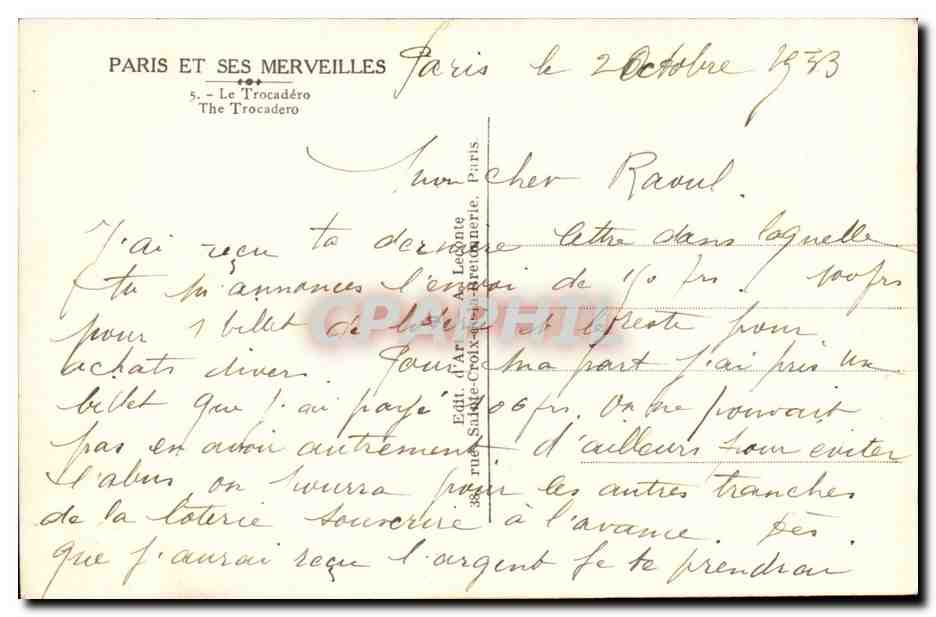 PARIS ET SES MERVEILLES
5. - Le Trocadéro
The Trocadero
Paris le 2 Octobre 1933
Mon cher Raoul.
J'ai reçu ta dernière lettre dans laquelle
tu m'annonces l'envoi de 150 frs. 100 frs
pour 1 billet de loterie et le reste pour
achats divers. Pour ma part j'ai pris un
billet que j'ai payé 106 frs. On ne pouvait
pas en avoir autrement d'ailleurs pour éviter
l'abus on pourra pour les autres tranches
de la loterie souscrire à l'avance. Dès
que j'aurai reçu l'argent je te prendrai
Edit. d'Art A. Leconte
38, rue Sainte-Croix-de-la-Bretonnerie, Paris.
CPAPHIL